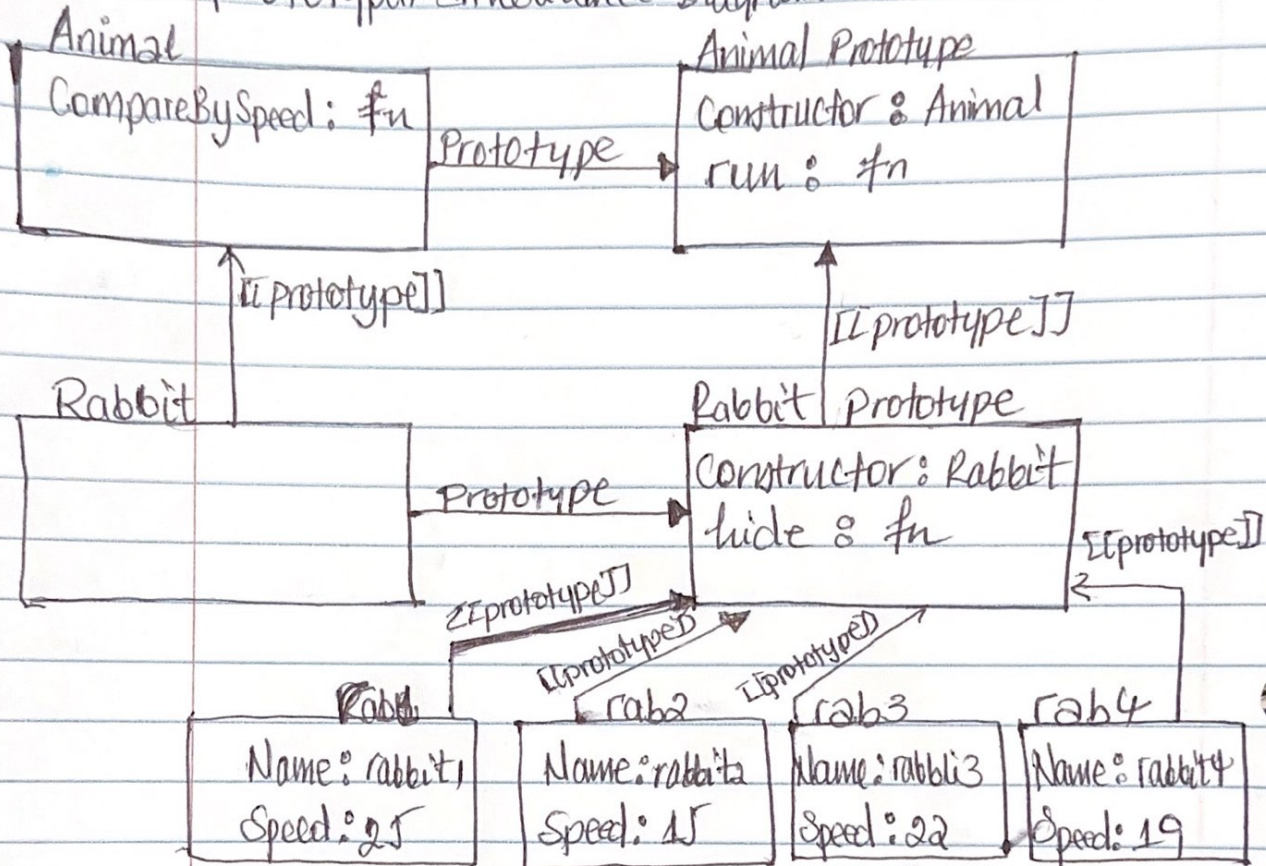 Animal
CompareBySpeed: fn
Prototype
Animal Prototype
Constructor: Animal
run: fn
[[prototype]]
[[prototype]]
Rabbit
Prototype
Rabbit Prototype
Constructor: Rabbit
hide: fn
[[prototype]]
[[prototype]]
[[prototype]]
[[prototype]]
Name: rabbit1
Speed: 25
rab2
Name: rabbit2
Speed: 15
rab3
Name: rabbli3
Speed: 22
rab4
Name: rabbit4
Speed: 19